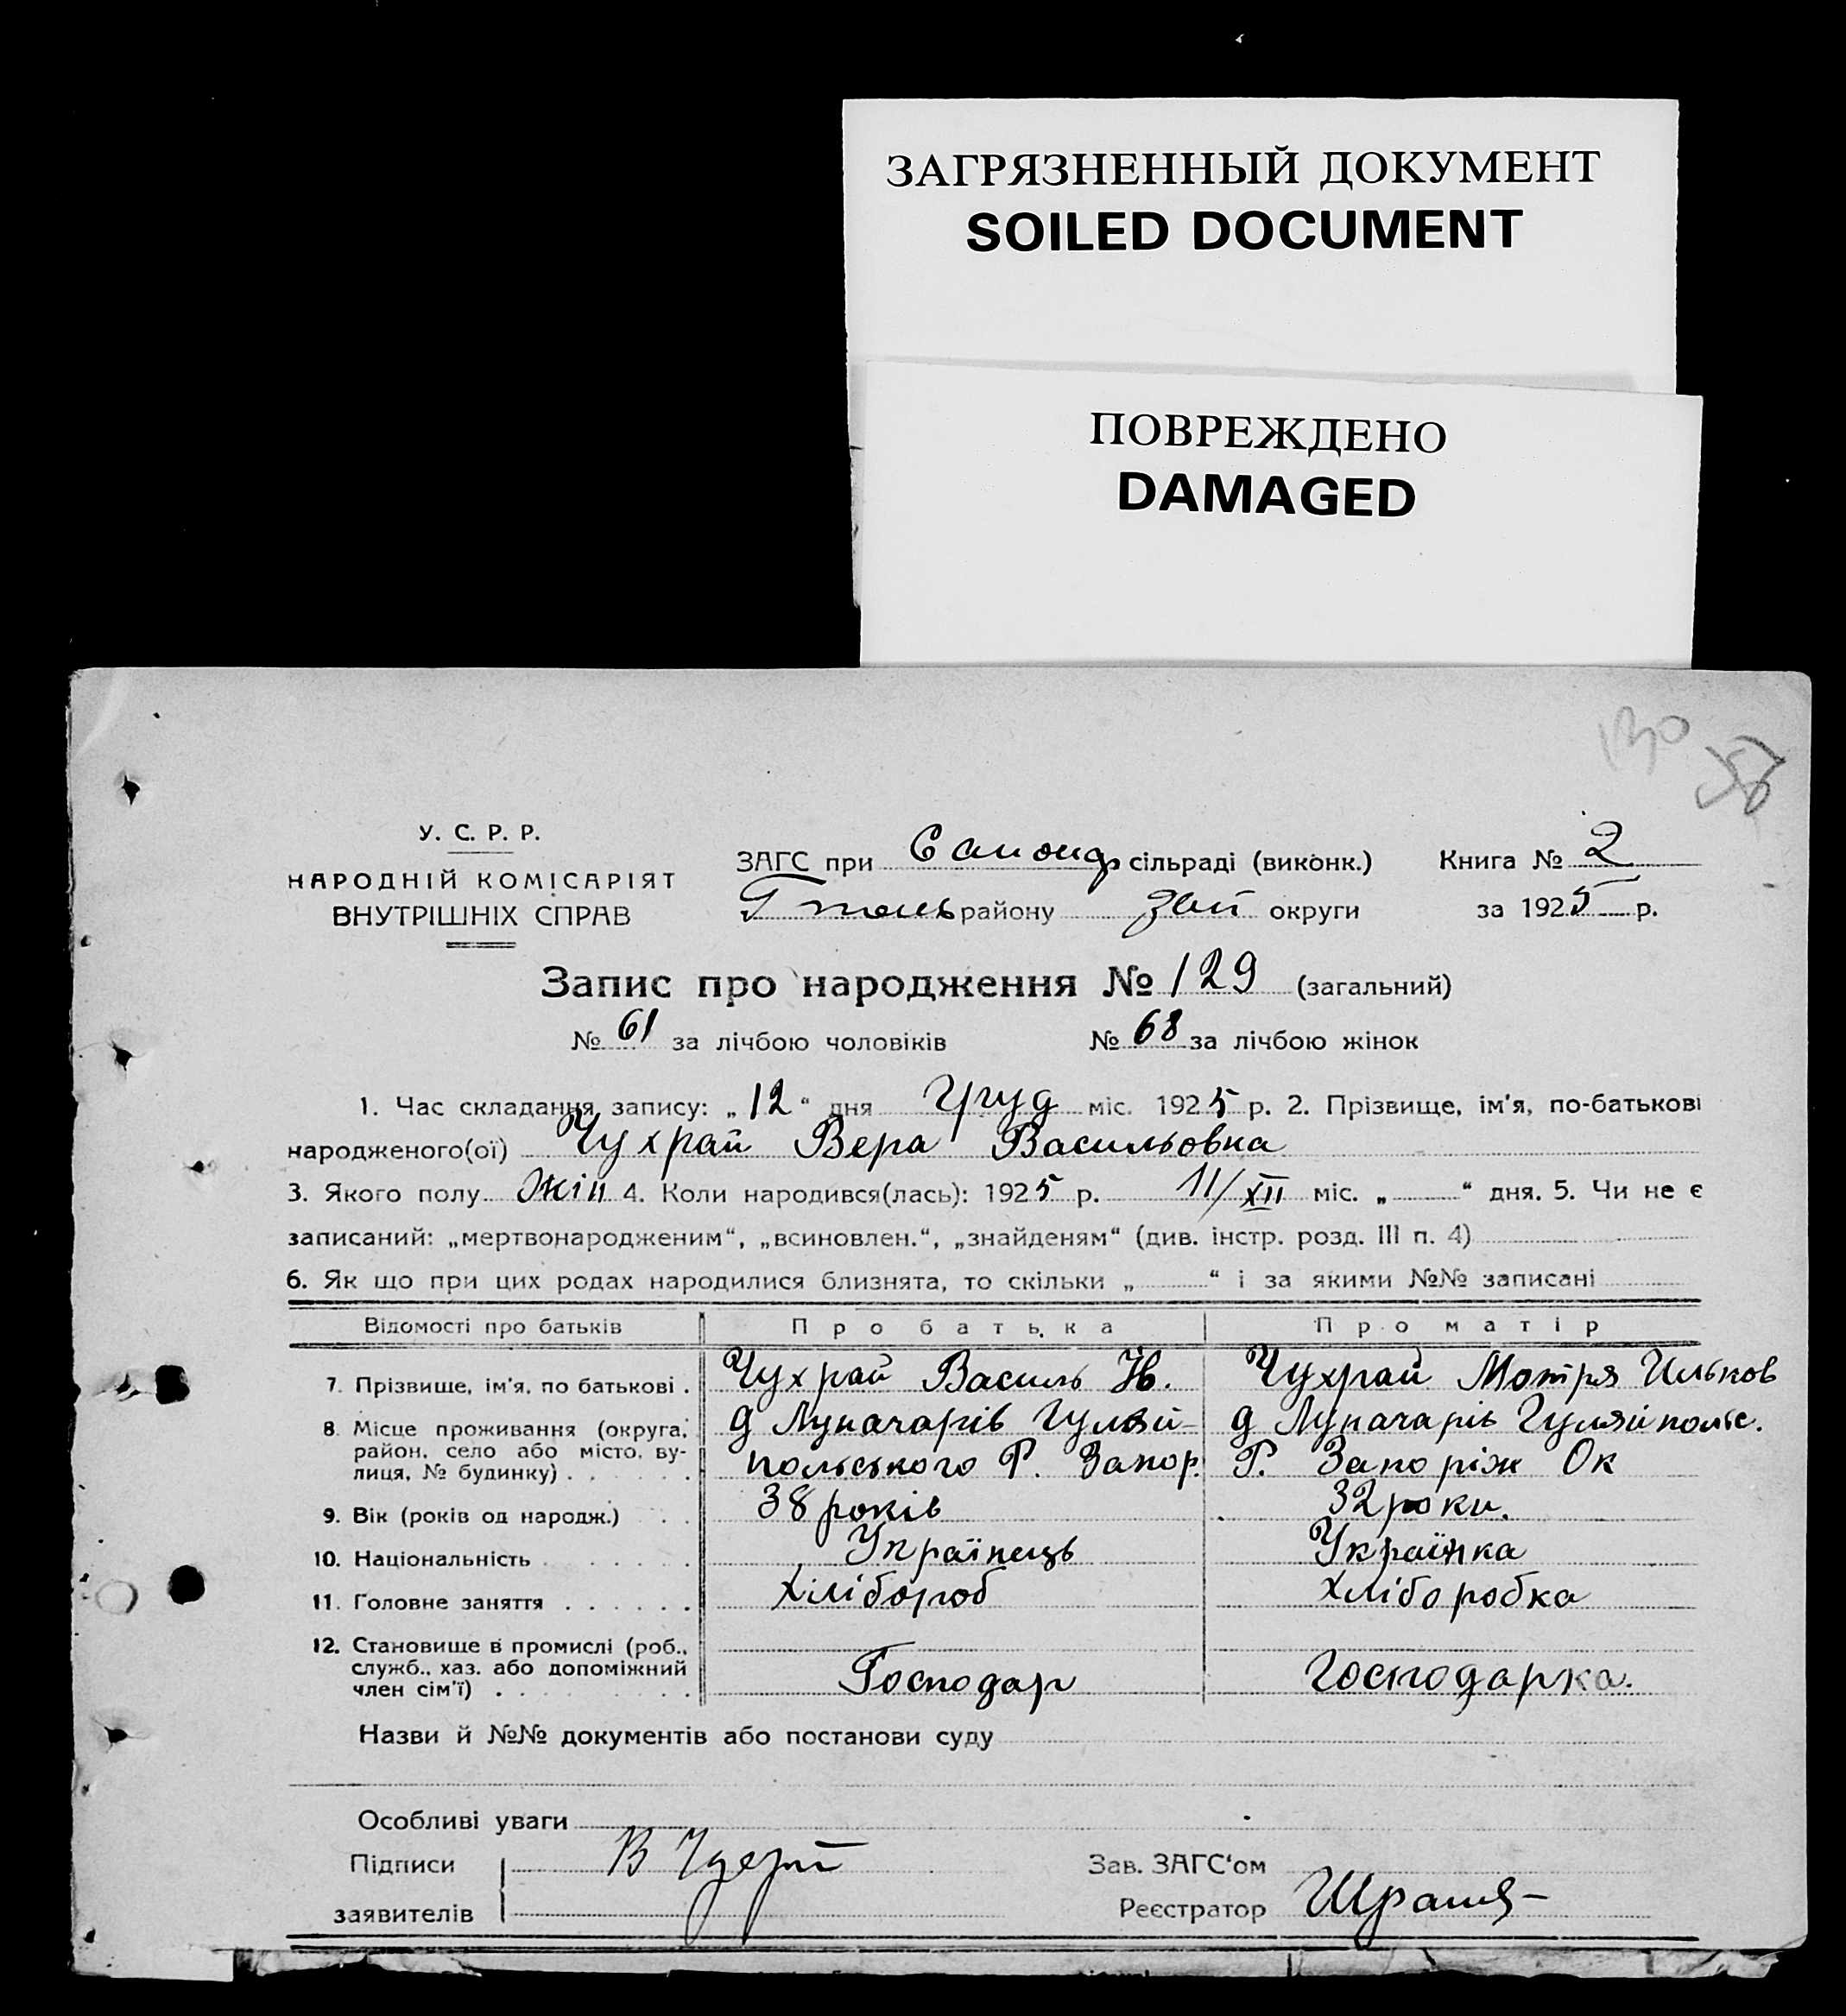 ЗАГРЯЗНЕННЫЙ ДОКУМЕНТ
SOILED DOCUMENT
ПОВРЕЖДЕНО
DAMAGED
У. С. Р. Р.
НАРОДНІЙ КОМІСАРІЯТ
ВНУТРІШНІХ СПРАВ
ЗАГС при сільраді (виконк.) Книга № 2
району Зап округи за 1925 р.
Запис про народження № 129 (загальний)
№ 61 за лічбою чоловіків № 68 за лічбою жінок
1. Час складання запису: „12“ дня Груд міс. 1925 р. 2. Прізвище, ім'я, по-батькові
народженого(ої) Чухрай Вера Васильовна
3. Якого полу Жін 4. Коли народився(лась): 1925 р. 11/XII міс. „ “ дня. 5. Чи не є
записаний: „мертвонародженим“, „всиновлен.“, „знайденям“ (див. інстр. розд. III п. 4)
6. Як що при цих родах народилися близнята, то скільки „ “ і за якими №№ записані
Відомості про батьків Про батька Про матір
7. Прізвище, ім'я, по батькові . Чухрай Василь Чухрай Мотря Ильков
8. Місце проживання (округа, район, село або місто, ву-лиця, № будинку) . . . . . .
д Луначарів Гуляй-
польського Р. Запор.
д Луначарів Гуляйпольс.
Р. Запоріж Ок
9. Вік (років од народж.) . . 38 років 32 роки.
10. Національність . . . . . . Українець Українка
11. Головне заняття . . . . . . Хлібороб Хліборобка
12. Становище в промислі (роб., служб., хаз. або допоміжний член сім'ї) . . . . . . . . . Господар Господарка.
Назви й №№ документів або постанови суду
Особливі уваги
Підписи Зав. ЗАГС'ом
заявителів Реєстратор